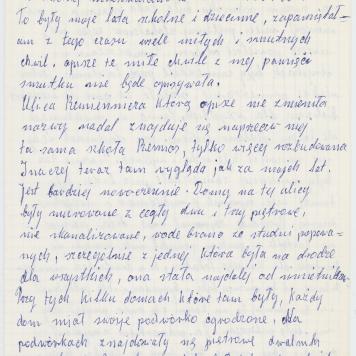 To były moje lata szkolne i dziecinne, zapamiętał-
am z tego czasu wiele miłych i smutnych
chwil, opisze te miłe chwile z mej pamięci
smutku nie będę opisywała.
Ulica którą opisze nie zmieniła
nazwy nadal znajduje się naprzeciw niej
ta sama szkoła tylko więcej rozbudowana
Inaczej teraz tam wygląda jak za moich lat.
Jest bardziej nowocześnie. Domy na tej ulicy
były murowane z cegły dwu i trzy piętrowe,
nie skanalizowane, wodę brano ze studni
nych, szczególnie z jednej która była na drodze
dla wszystkich, ona stała najdalej od
Przy tych kilku domach które tam były, każdy
dom miał swoje podwórko ogrodzone, Na
podwórkach znajdowały się piętrowe